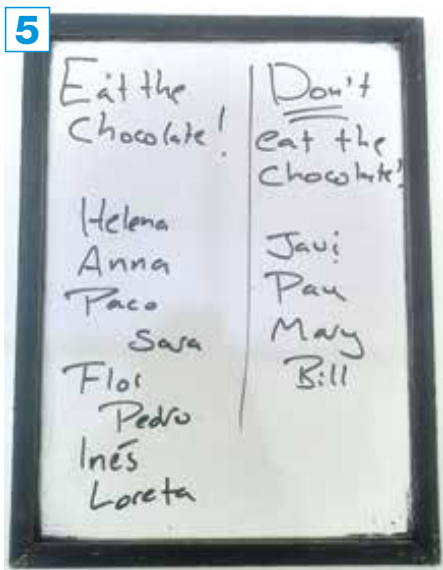 5
Eat the
Chocolate!
Helena
Anna
Paco
Sara
Flor
Pedro
Inés
Loreta
Don't
eat the
Chocolate!
Javi
Pau
Mary
Bill